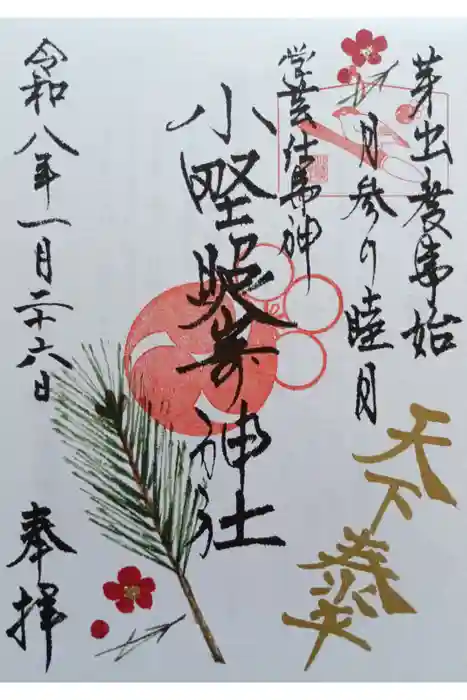 芽出度事始
月参り睦月
天下泰平
学芸仕事神
小野照崎神社
令和八年一月二十六日
奉拝